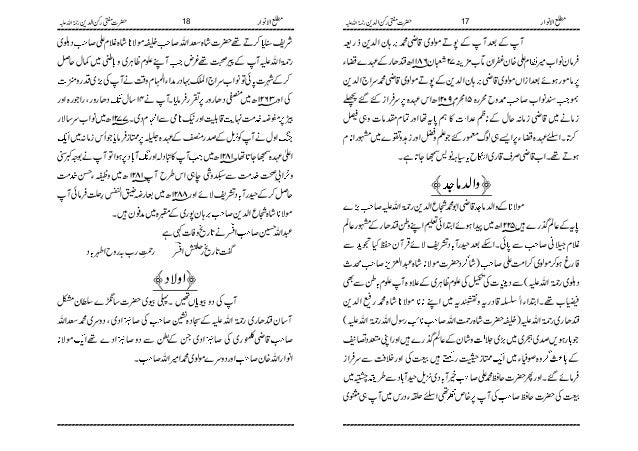 مطلع الانوار 17 حضرت مفتی رکن الدین رحمۃ اللہ علیہ
آپ کے بعد آپ کے پوتے مولوی قاضی محمد برہان الدین ذریعہ
فرمان نواب میر نظام علی خان غفران مآب مزینہ ۲۷ شعبان ۱۱۸۶ھ قندھار کے عہدہ قضاء
پر مامور ہوئے بعد ازاں مولوی قاضی برہان الدین کے پوتے مولوی قاضی محمد سراج الدین
بموجب سند نواب صاحب ممدوح محررہ ۱۵ محرم ۱۲۰۹ھ اس عہدہ پر سرفراز کئے گئے پچھلے
زمانے میں قاضی صاحب کمال کے ناظم عدالت کا ہم پایہ تھا اور تمام مقدمات وہی فیصل
کرتا۔ اسلئے عہدہ قضاء پر ایسے ہی لوگ معمور کئے جو علم و فضل اور زہد و تقوے میں مشہور انام
ہوتے تھے۔ اب قاضی صرف قاری النکاح یا سیاہہ نویس سمجھا جاتا ہے۔
والد ماجد
مولانا کے والد ماجد قاضی ابو محمد شجاع الدین صاحب رحمۃ اللہ علیہ صاحب بڑے
پایہ کے عالم گذرے ہیں ۱۲۲۵ھ میں پیدا ہوئے ابتدائی تعلیم اپنے وطن قندھار کے مشہور عالم
غلام جیلانی صاحب سے پائی۔ اسکے بعد حیدرآباد تشریف لائے قرآن حفظ کیا تجوید سے
فارغ ہو کر مولوی کرامت علی صاحب (شاگرد حضرت مولانا شاہ عبدالعزیز صاحب محدث
دہلوی رحمۃ اللہ علیہ) سے دینیات کی تکمیل کی علوم ظاہری کے علاوہ آپ علوم باطن سے بھی
فیضیاب تھے۔ ابتداءاً سلسلہ قادریہ و نقشبندیہ میں اپنے نانا مولانا شاہ محمد رفیع الدین
قندھاری رحمۃ اللہ علیہ (خلیفہ حضرت شاہ رحمت اللہ صاحب نائب رسول اللہ رحمۃ اللہ علیہ)
جو بارہویں صدی ہجری میں بڑی جلالت و شان کے عالم گذرے ہیں اور اپنی متعدد تصانیف
کے باعث گروہ صوفیاء میں ایک ممتاز حیثیت رکھتے ہیں بیعت کی اور خلافت سے سرفراز
فرمائے گئے۔ اور پھر حضرت حافظ محمد علی صاحب خیرآبادی نزیل حیدرآباد سے طریقہ چشتیہ میں
بیعت کی حضرت حافظ صاحب کی آپ پر خاص نظر تھی اسلئے حلقہ درس میں آپ ہی مثنوی
مطلع الانوار 18 حضرت مفتی رکن الدین رحمۃ اللہ علیہ
شریف سنایا کرتے تھے حضرت شاہ سعد اللہ صاحب خلیفہ مولانا شاہ غلام علی صاحب دہلوی
رحمۃ اللہ علیہ آپ کے پیر صحبت تھے غرض جب آپ نے علوم ظاہری و باطنی میں کمال حاصل
کر کے شہرت پائی تو نواب سراج الملک بہادر مدار المہام وقت نے آپ کی بڑی قدر و منزلت
کی اور ۱۲۶۳ھ میں منصفی دھارور پر تقرر فرمایا۔ آپ نے ۱۳ سال تک دھارور، راجورہ اور
بیڑ پر مفوضہ خدمت نہایت قابلیت اور نیک نامی سے انجام دی۔ ۱۲۷۷ھ میں نواب سر سالار
جنگ اول نے آپ کو نزیل کے صدر منصف کے عہدہ جلیلہ پر ممتاز فرمایا جو اُس زمانہ میں ایک
اعلیٰ عہدہ سمجھا جاتا تھا۔ ۱۲۸۱ھ میں جب آپ کا تبادلہ اورنگ آباد پر ہوا تو آپ نے بوجہ کبرسنی
و خرابی صحت خدمت سے سبکدوشی چاہی اس طرح آپ ۱۲۸۱ھ میں وظیفہ حسن خدمت
حاصل کر کے حیدرآباد تشریف لائے اور ۱۲۸۸ھ میں بعارضہ ضیق النفس رحلت فرمائی آپ
مولانا شاہ شجاع الدین صاحب برہان پوری کے مقبرہ میں مدفون ہیں۔
عبداللہ حسین صاحب افسر نے تاریخ وفات کہی ہے
گفت تاریخ رحلتش افسر رحمت رب بہ روح اطہر باد
اولاد
آپ کی دو بیویاں تھیں۔ پہلی بیوی حضرت سانگڑے سلطان مشکل
آسان قندھاری رحمۃ اللہ علیہ کے سجادہ نشین صاحب کی صاحبزادی، دوسری محمد سعد اللہ
صاحب قاضی کلمنوری کی صاحبزادی جن کے بطن سے دو صاحبزادے تھے ایک مولانا
انوار اللہ خان صاحب اور دوسرے مولوی محمد امیر اللہ صاحب۔